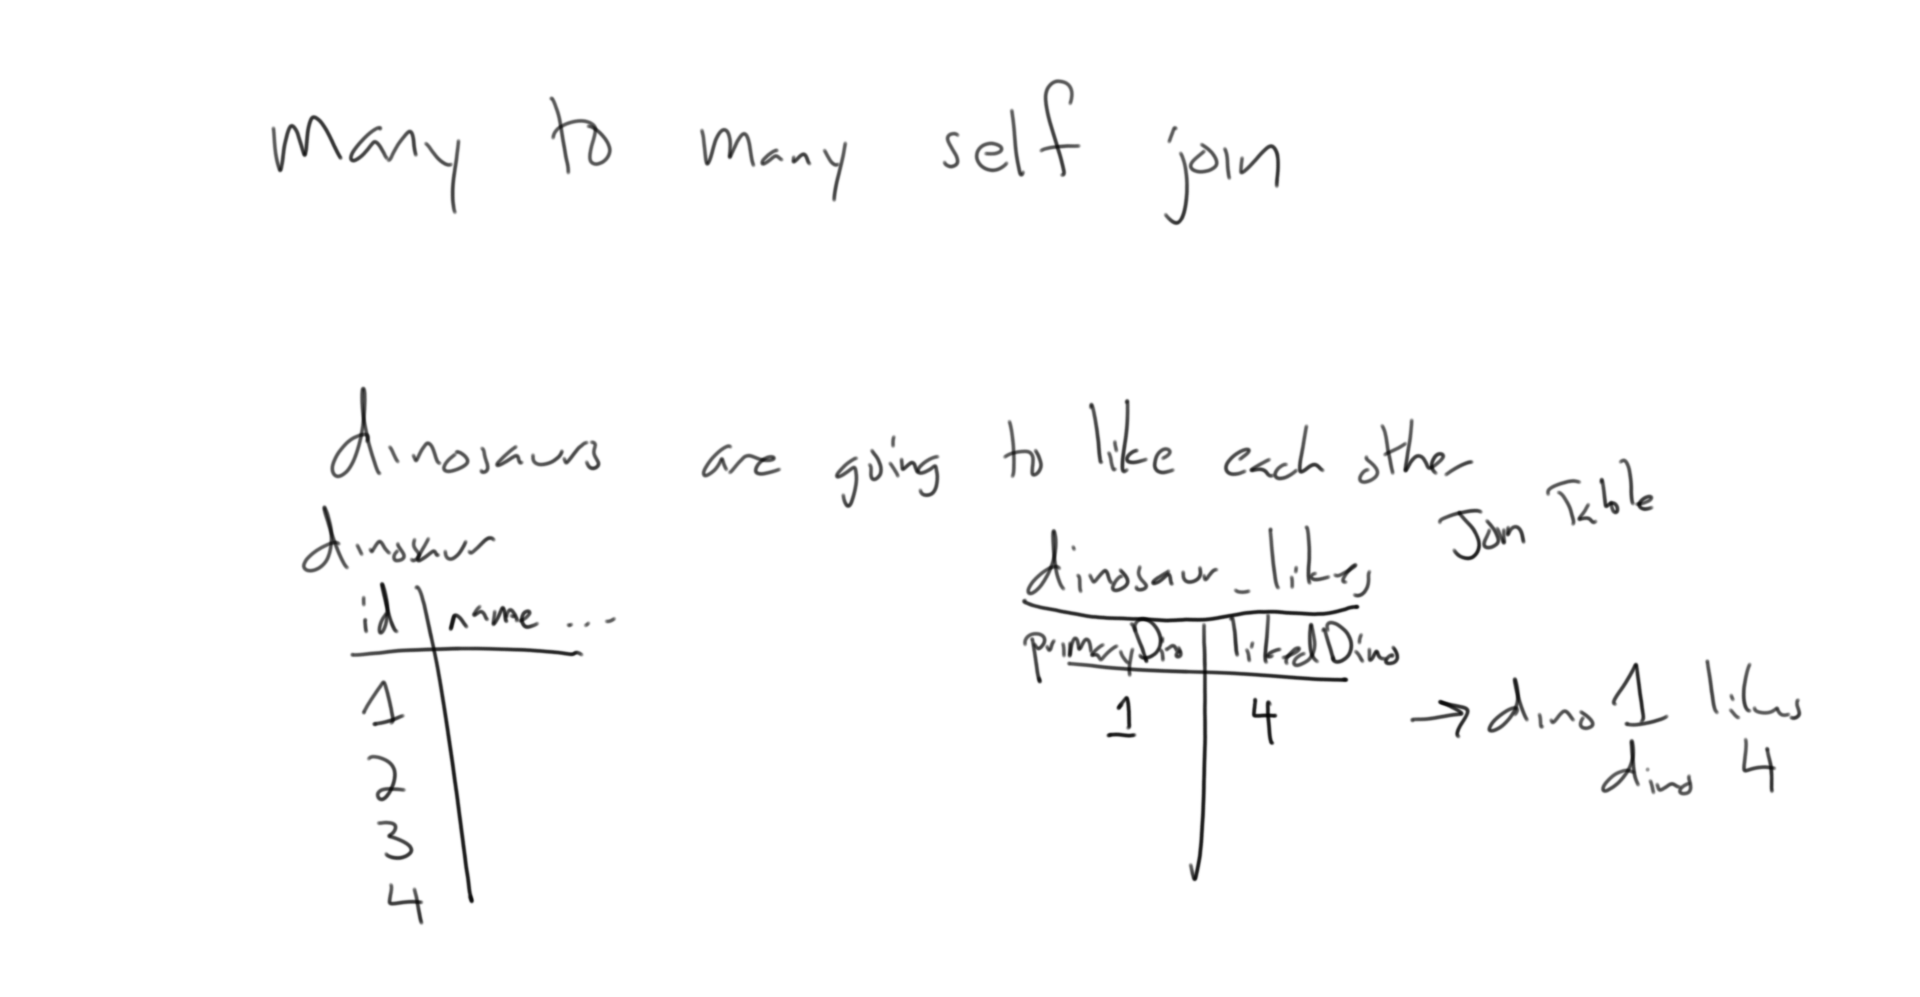 many to many self join
dinosaurs are going to like each other
dinosaur
id name ...
1
2
3
4
dinosaur_likes
Join Table
primaryDino likedDino
1 4
→ dino 1 likes
dino 4